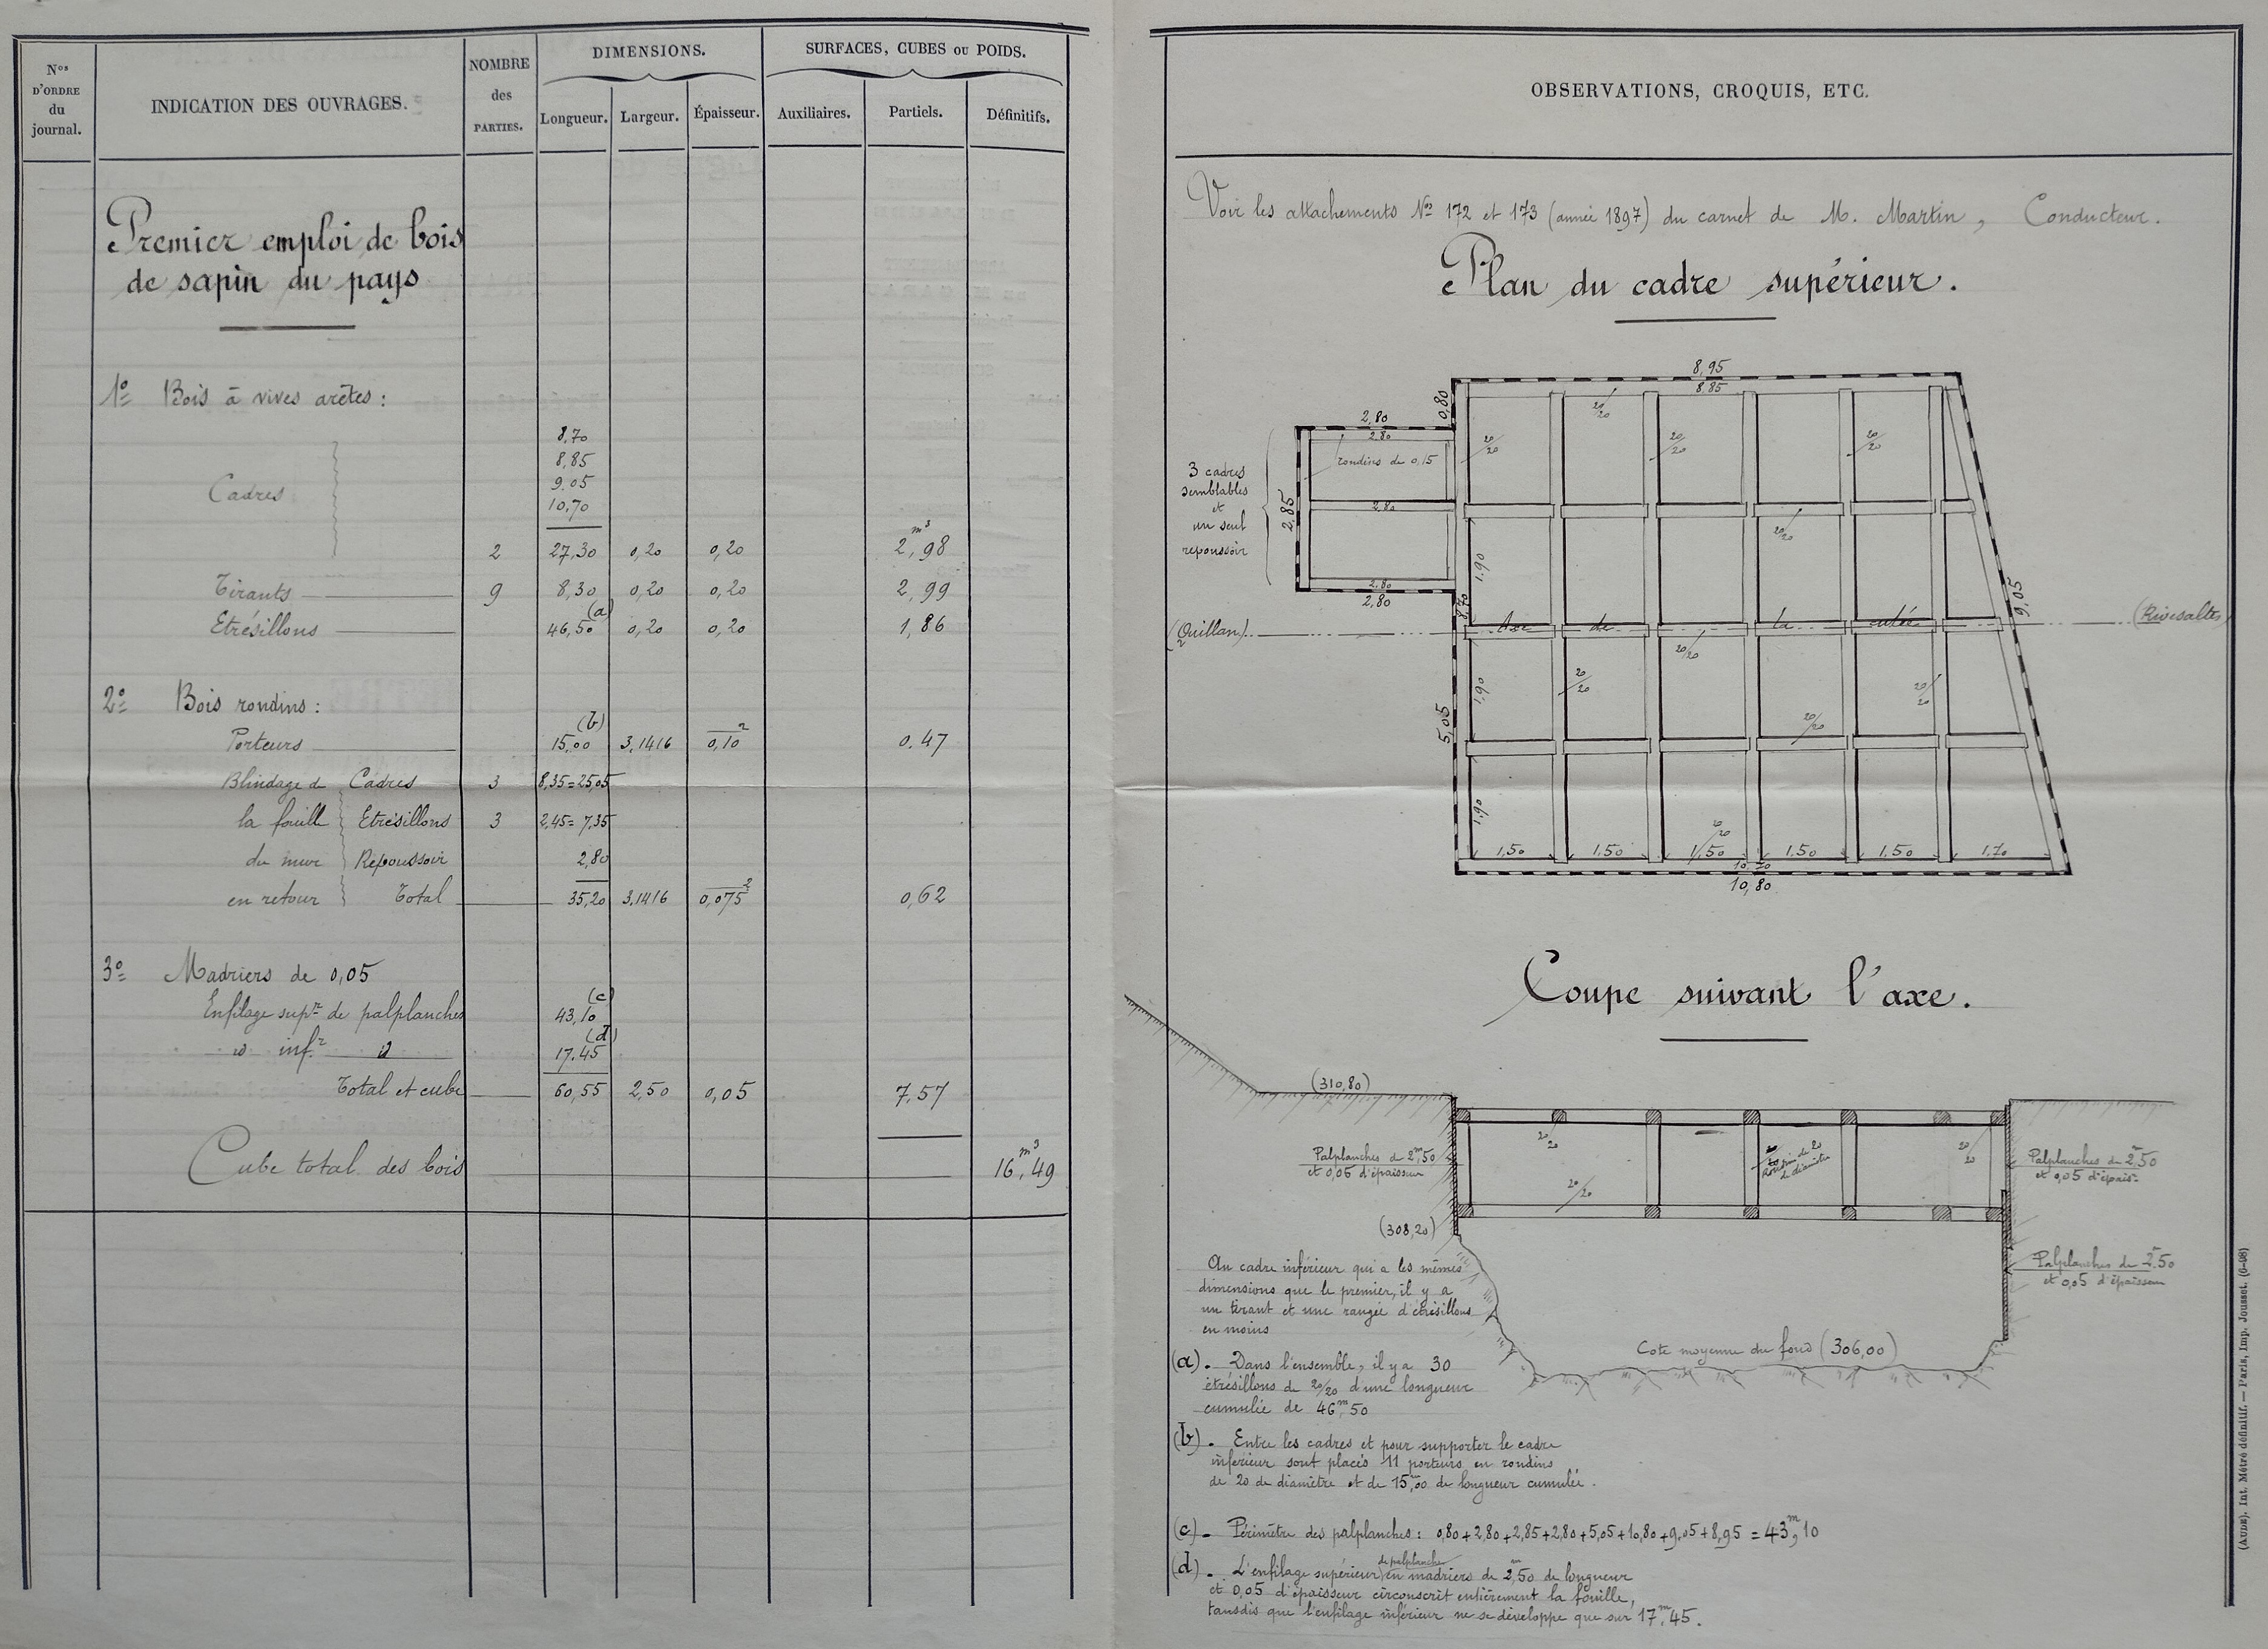 Nos
D'ORDRE
du
journal.
INDICATION DES OUVRAGES.
NOMBRE
des
PARTIES.
DIMENSIONS.
Longueur. Largeur. Épaisseur.
SURFACES, CUBES OU POIDS.
Auxiliaires. Partiels. Définitifs.
Premier emploi de bois
de sapin du pays
1º Bois à vives arêtes :
8,70
8,85
Cadres 9.05
10,70
2 27,30 0,20 0,20 2,98 m3
Tirants 9 8,30 0,20 0,20 2,99
(a)
Etrésillons 46,50 0,20 0,20 1,86
2º Bois rondins :
(b)
Porteurs 15,00 3,1416 0,10² 0.47
Blindage de Cadres 3 8,35=25,05
la fouille Etrésillons 3 2,45=7,35
du mur Repoussoir 2,80
en retour Total 35,20 3,1416 0,075² 0,62
3º Madriers de 0,05
(c)
Enfilage supr de palplanches 43,10
(d)
d infr d 17.45
Total et cube 60,55 2,50 0,05 7.57
Cube total des bois 16,49 m3
OBSERVATIONS, CROQUIS, ETC.
Voir les attachements Nos 172 et 173 (année 1897) du carnet de M. Martin, Conducteur.
Plan du cadre supérieur.
8,95
8,85
0,80
20/20
2,80
2,80
20/20
20/20
20/20
rondins de 0,15
3 cadres
semblables
et
un seul
repoussoir
2,85
2,80
20/20
1.90
2.80
2,80
8,70
9,05
(Quillan) Axe de la culée (Rivesaltes)
20/20
20/20
20/20
1,90
5,05
20/20
1,90
20/20
1,50 1.50 1,50 1.50 1.50 1.70
10,70
10,80
Coupe suivant l'axe.
(310,80)
20/20
Rondin de 20
de diamètre
20/20
Palplanches de 2m,50
et 0,05 d'épaisseur
Palplanches de 2m,50
et 0,05 d'épaisr
20/20
(308,20)
Palplanches de 2m.50
et 0,05 d'épaisseur
Au cadre inférieur qui a les mêmes
dimensions que le premier, il y a
un tirant et une rangée d'étrésillons
en moins
Cote moyenne du fond (306,00)
(a). Dans l'ensemble, il y a 30
étrésillons de 20/20 d'une longueur
cumulée de 46m,50
(b). Entre les cadres et pour supporter le cadre
inférieur sont placés 11 porteurs en rondins
de 20 de diamètre et de 15m,00 de longueur cumulée.
(c). Périmètre des palplanches : 0,80+2,80+2,85+2,80+5,05+10,80+9,05+8,95 = 43m,10
(d). L'enfilage supérieur de palplanche en madriers de 2m,50 de longueur
et 0,05 d'épaisseur circonscrit entièrement la fouille,
tansdis que l'enfilage inférieur ne se développe que sur 17m,45.
(AUDE). Int. Métré définitif. — Paris, Imp. Jousset. (6-98)